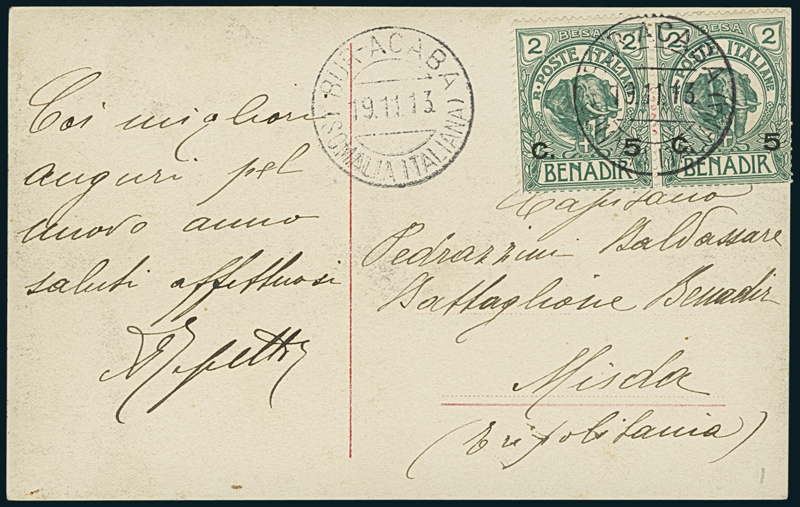 Coi migliori
auguri pel
nuovo anno
saluti affettuosi
BUR ACABA
19.11.13
(SOMALIA ITALIANA)
2 BESA 2
R. POSTE ITALIANE
C. 5
BENADIR
2 BESA
R. POSTE ITALIANE
C. 5
BENADIR
ACABA
19.11.13
Capitano
Pedrazzini Baldassare
Battaglione Benadir
Misda
(Tripolitania)